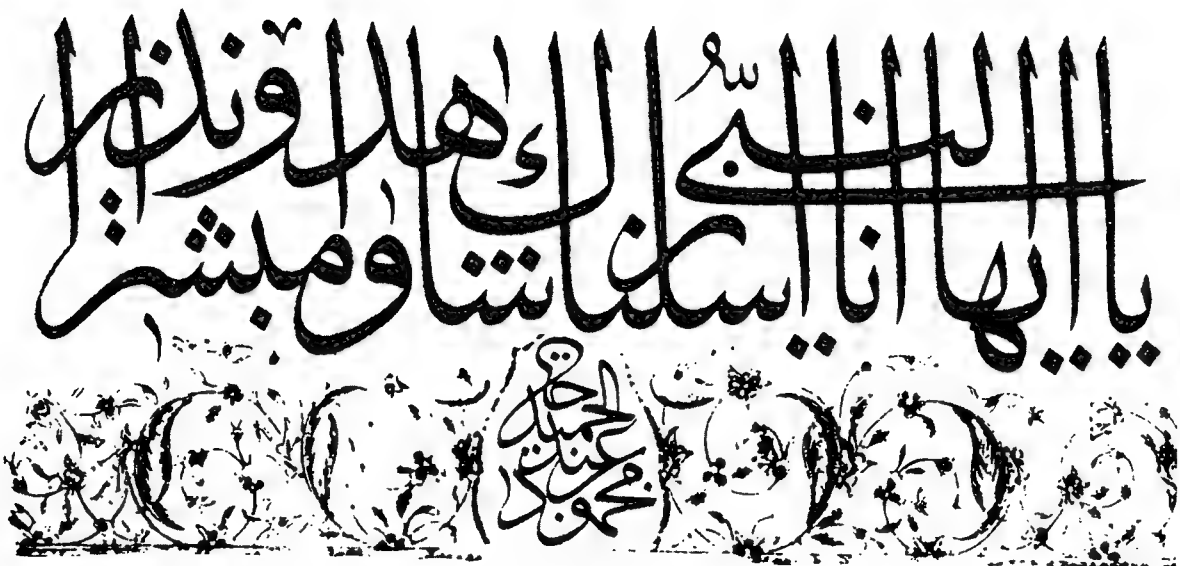 يا ايها النبي انا ارسلناك شاهدا ومبشرا ونذيرا
محمود بن عبد الحميد خان